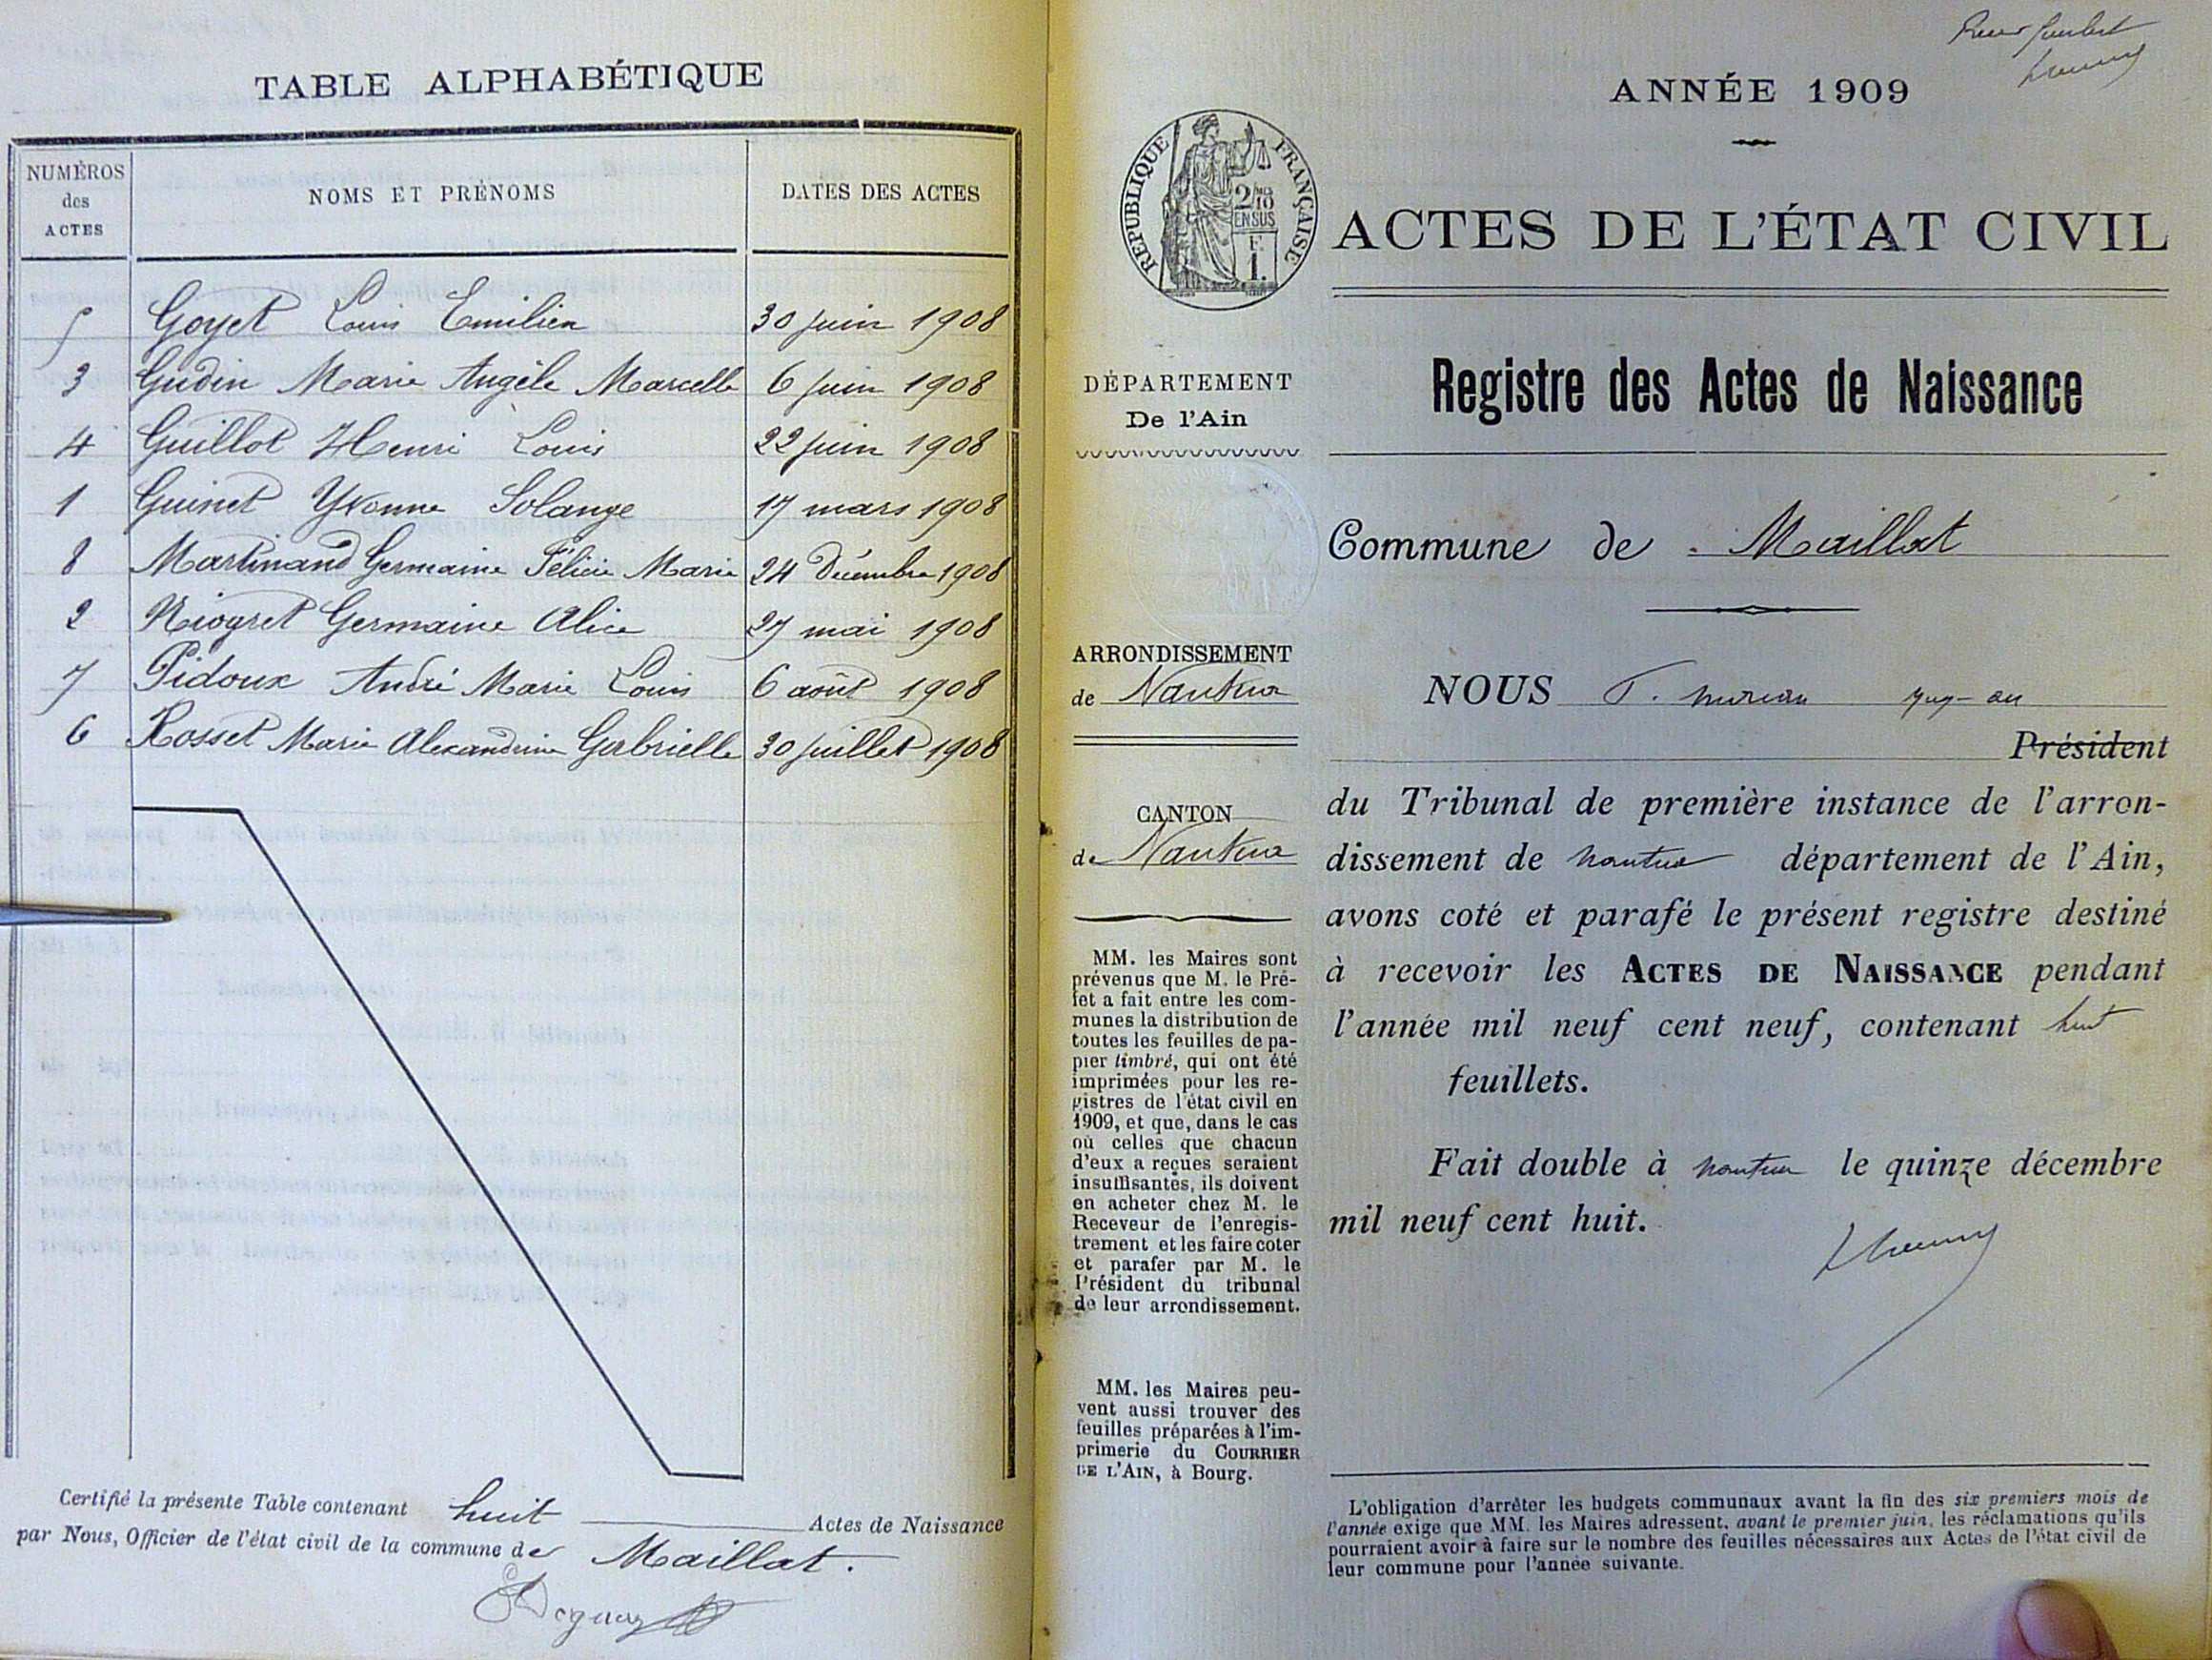 TABLE ALPHABÉTIQUE
NUMÉROS
des
ACTES
NOMS ET PRÉNOMS
DATES DES ACTES
5 Goyet Louis Emilien 30 juin 1908
3 Gudin Marie Angèle Marcelle 6 juin 1908
4 Guillot Henri Louis 22 juin 1908
1 Guinet Yvonne Solange 17 mars 1908
8 Martinand Germaine Félicie Marie 24 Décembre 1908
2 Niogret Germaine Alice 27 mai 1908
7 Pidoux André Marie Louis 6 août 1908
6 Rosset Marie Alexandrine Gabrielle 30 juillet 1908
Certifié la présente Table contenant huit Actes de Naissance
par Nous, Officier de l'état civil de la commune de Maillat.
ANNÉE 1909
RÉPUBLIQUE FRANÇAISE
2/10
EN SUS
F.
1.
ACTES DE L'ÉTAT CIVIL
DÉPARTEMENT
De l'Ain
ARRONDISSEMENT
de Nantua
CANTON
de Nantua
MM. les Maires sont
prévenus que M. le Pré-
fet a fait entre les com-
munes la distribution de
toutes les feuilles de pa-
pier timbré, qui ont été
imprimées pour les re-
gistres de l'état civil en
1909, et que, dans le cas
où celles que chacun
d'eux a reçues seraient
insuffisantes, ils doivent
en acheter chez M. le
Receveur de l'enregis-
trement et les faire coter
et parafer par M. le
Président du tribunal
de leur arrondissement.
MM. les Maires peu-
vent aussi trouver des
feuilles préparées à l'im-
primerie du COURRIER
DE L'AIN, à Bourg.
Registre des Actes de Naissance
Commune de Maillat
NOUS
Président
du Tribunal de première instance de l'arron-
dissement de nantua département de l'Ain,
avons coté et parafé le présent registre destiné
à recevoir les ACTES DE NAISSANCE pendant
l'année mil neuf cent neuf, contenant huit
feuillets.
Fait double à nantua le quinze décembre
mil neuf cent huit.
L'obligation d'arrêter les budgets communaux avant la fin des six premiers mois de
l'année exige que MM. les Maires adressent, avant le premier juin, les réclamations qu'ils
pourraient avoir à faire sur le nombre des feuilles nécessaires aux Actes de l'état civil de
leur commune pour l'année suivante.